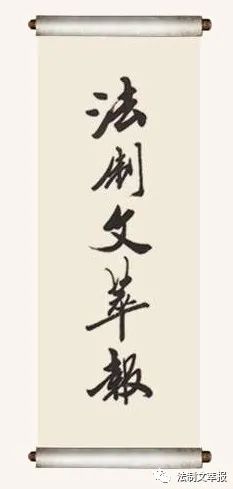 法制文萃報
法制文萃报